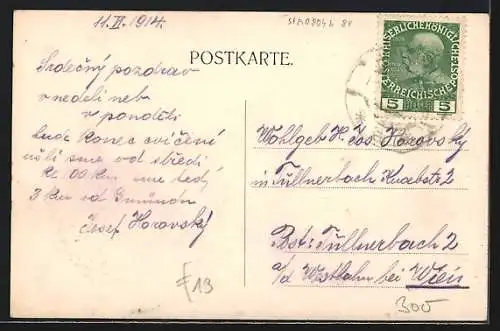 11. VI. 1914.
POSTKARTE.
KAISERLICHE KÖNIGLICHE
ÖSTERREICHISCHE POST
5 HELLER 5
Srdečný pozdrav
v neděli neb
v pondělí
bude konec cvičení
ušli sme od středi
100 km sme tedy
3 km od Gmündn
Josef Horovský
Wohlgeb H. Jos. Horovský
in Tüllnerbach 2
Post: Tüllnerbach 2
a/d Westbahn bei Wien
F19
300